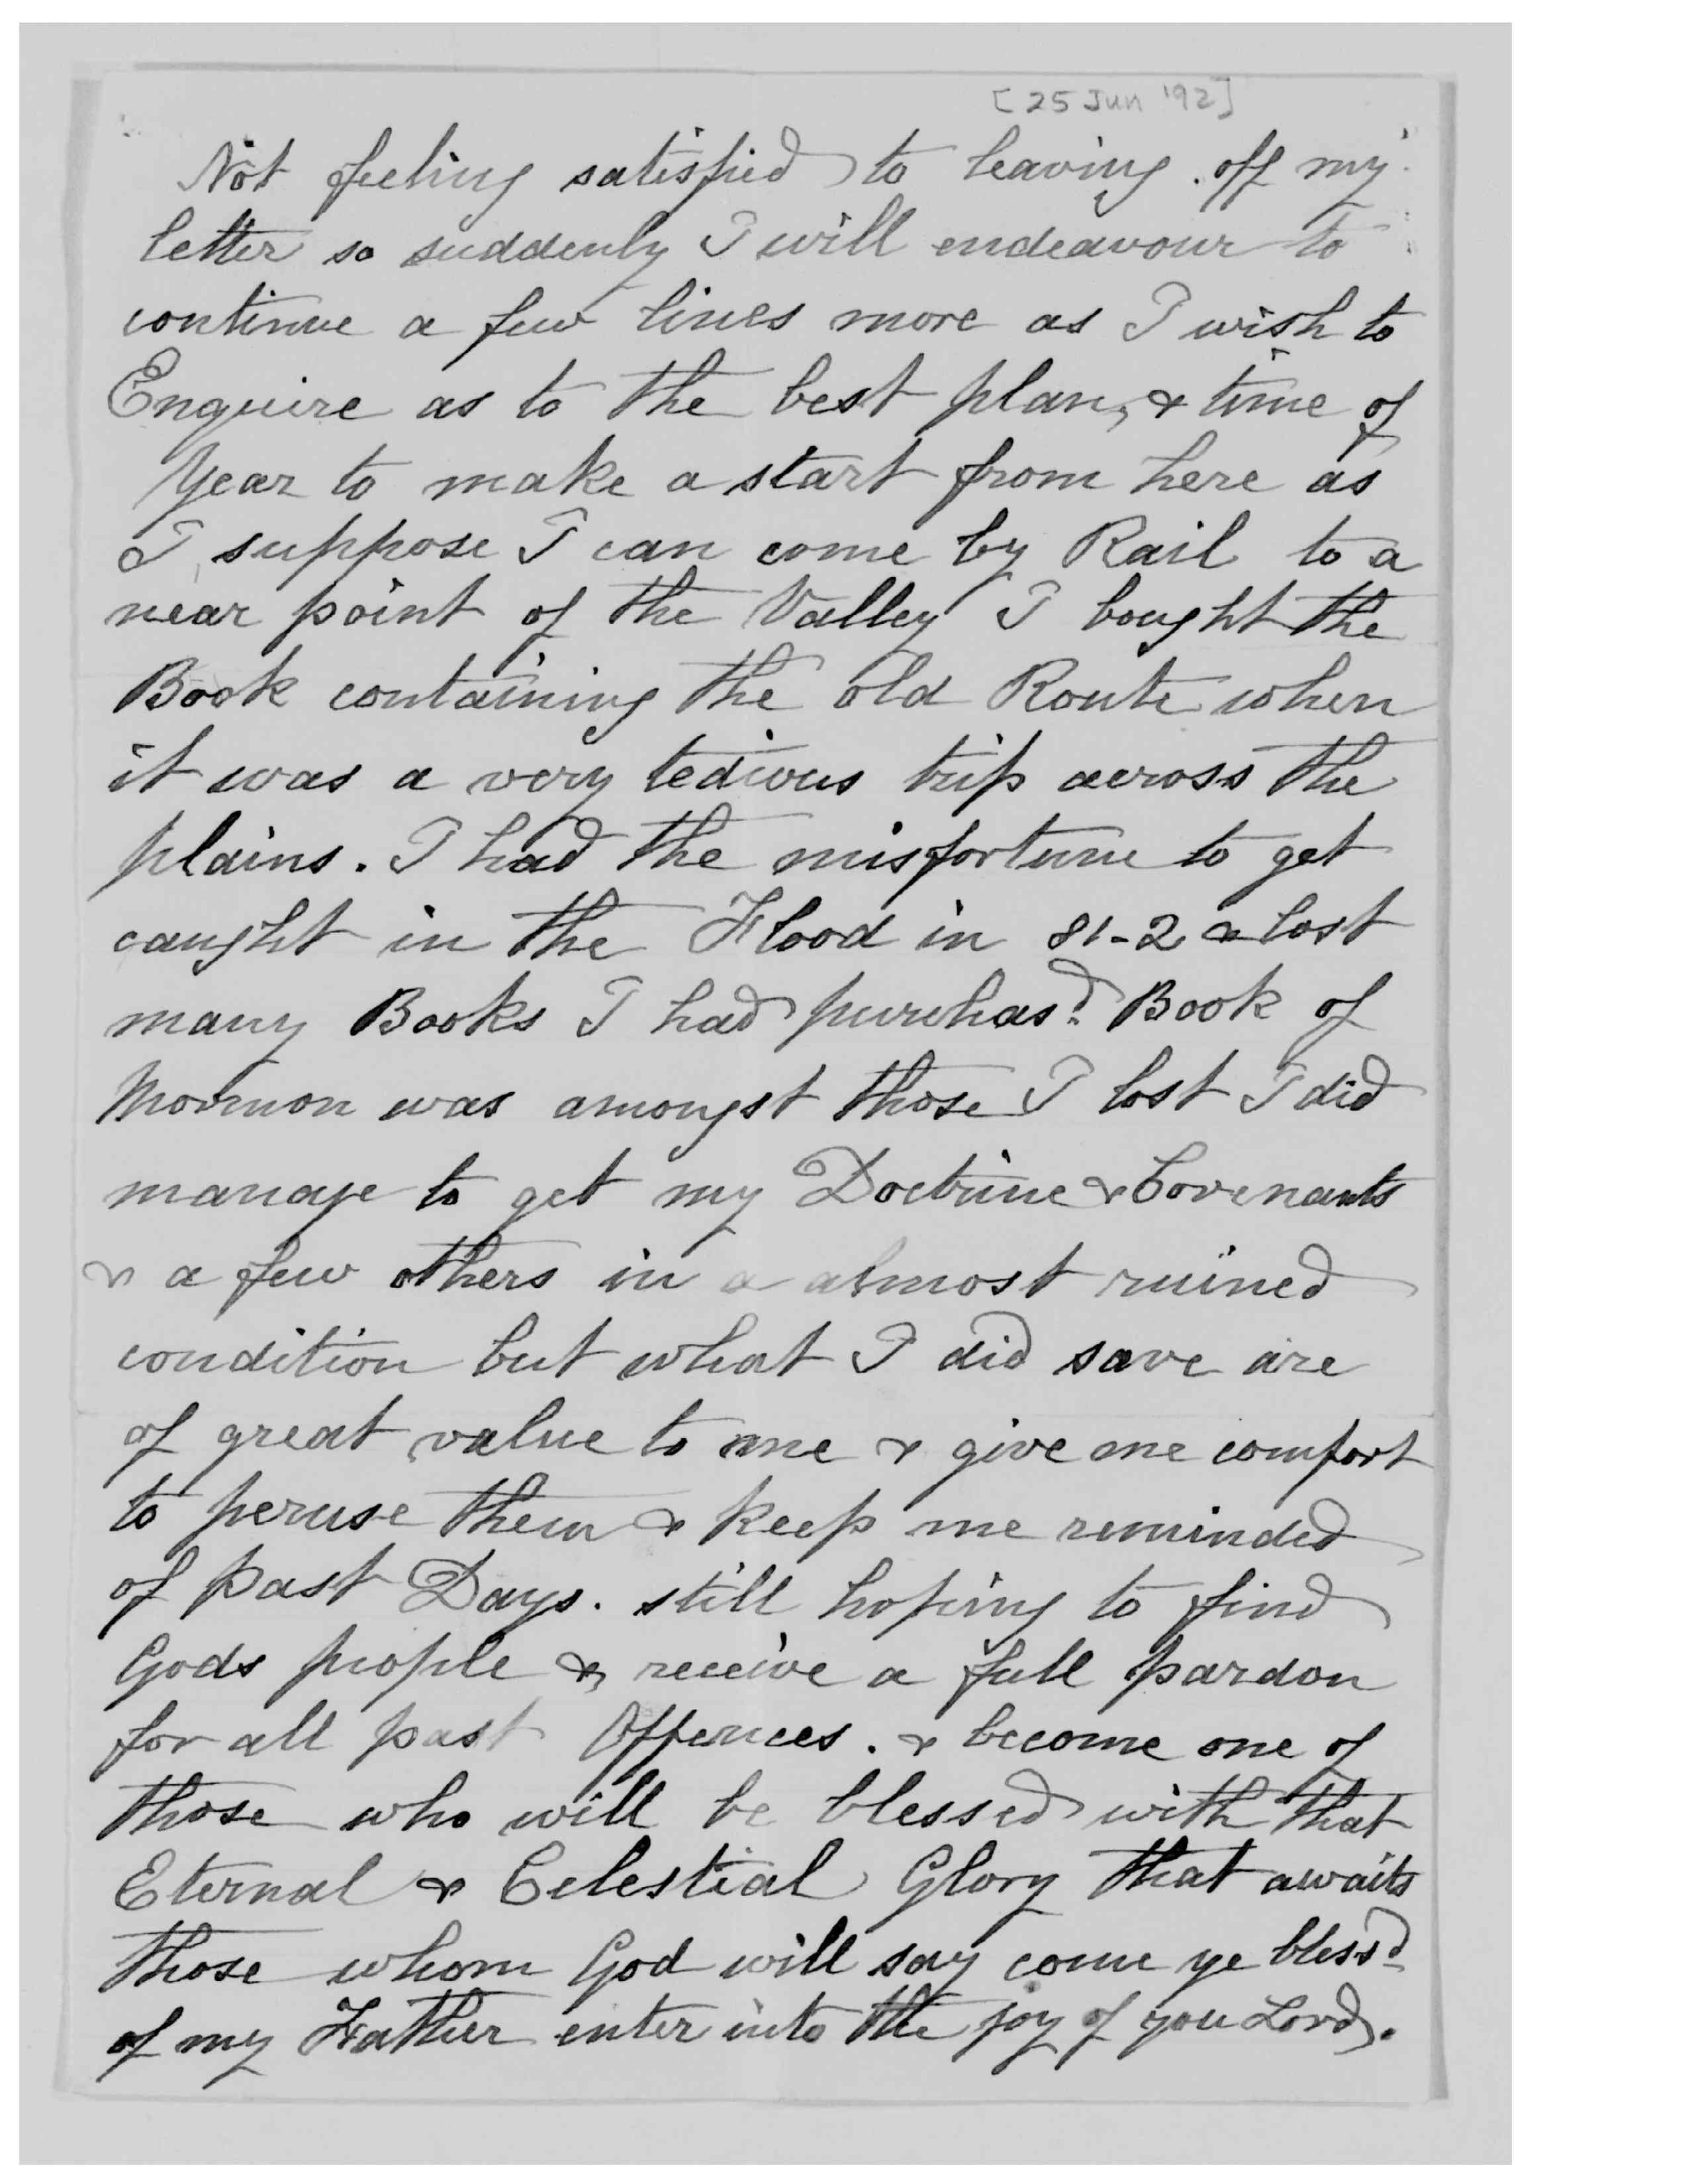 [25 Jun '92]
Not feeling satisfied to leaving off my
letter so suddenly I will endeavour to
continue a few lines more as I wish to
Enquire as to the best plan, & time of
Year to make a start from here as
I suppose I can come by Rail to a
near point of the Valley I bought the
Book containing the old Route when
it was a very tedious trip across the
plains. I had the misfortune to get
caught in the Flood in 81-2 & lost
many Books I had purchasd Book of
Mormon was amongst those I lost I did
manage to get my Doctrine & Covenants
& a few others in a almost ruined
condition but what I did save are
of great value to me & give me comfort
to peruse them & keep me reminded
of past Days. still hoping to find
Gods people & receive a full pardon
for all past Offences. & become one of
those who will be blessed with that
Eternal & Celestial Glory that awaits
those whom God will say come ye blessd
of my Father enter into the joy of you Lord.